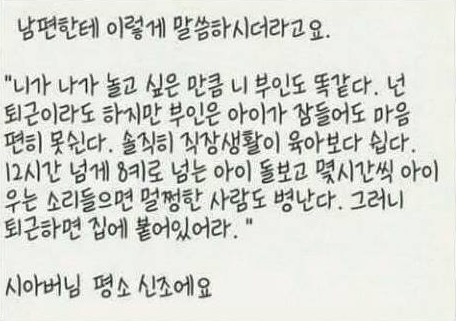 남편한테 이렇게 말씀하시더라고요.
"니가 나가 놀고 싶은 만큼 니 부인도 똑같다. 넌
퇴근이라도 하지만 부인은 아이가 잠들어도 마음
편히 못쉰다. 솔직히 직장생활이 육아보다 쉽다.
12시간 넘게 8키로 넘는 아이 돌보고 몇시간씩 아이
우는 소리들으면 멀쩡한 사람도 병난다. 그러니
퇴근하면 집에 붙어있어라. "
시아버님 평소 신조에요